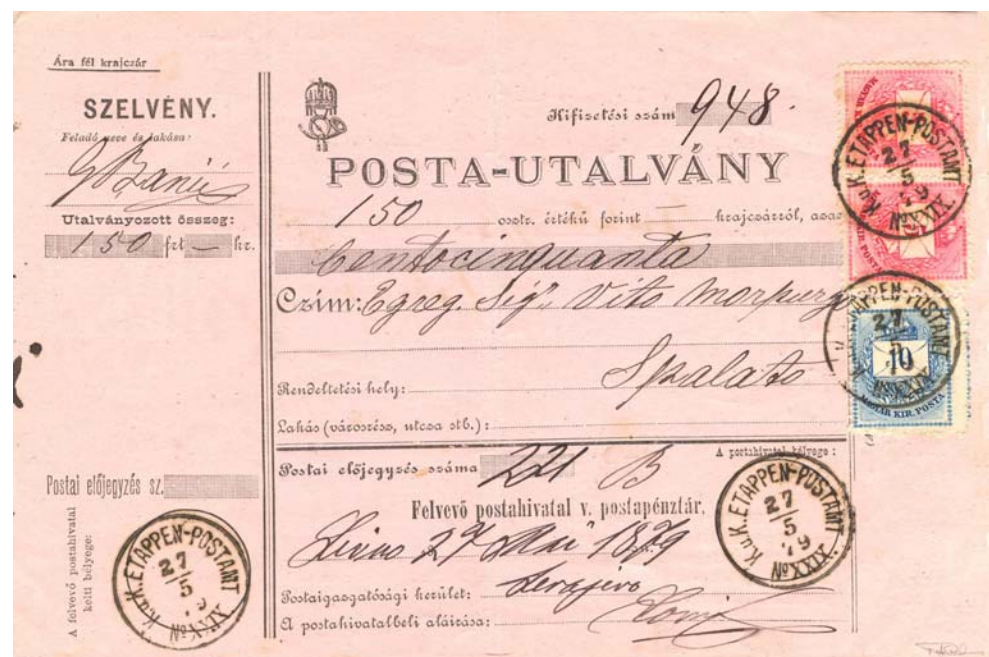 Ára fél krajczár
SZELVÉNY.
Feladó neve és lakása:
Utalványozott összeg:
150 frt — kr.
Postai előjegyzés sz.
A felvevő postahivatal
kelti bélyege:
K.u.K. ETAPPEN-POSTAMT
27
5
79
No XXIX
Kifizetési szám 948.
POSTA-UTALVÁNY
150 osztr. értékű forint — krajczárról, azaz
Centocinquanta
Czím: Egreg. Sigr Vito Morpurg
Spalato
Rendeltetési hely:
Lakás (városrész, utcsa stb.):
Postai előjegyzés száma 221 B
A postahivatal bélyege:
Felvevő postahivatal v. postapénztár.
Livno 27 Mai 1879
Postaigazgatósági kerület: Serajevo
A postahivatalbeli aláirása:
K.u.K. ETAPPEN-POSTAMT
27
5
79
No XXIX
K.u.K. ETAPPEN-POSTAMT
27
5
79
No XXIX
K.u.K. ETAPPEN-POSTAMT
27
5
No XXIX
10
MAGYAR KIR. POSTA